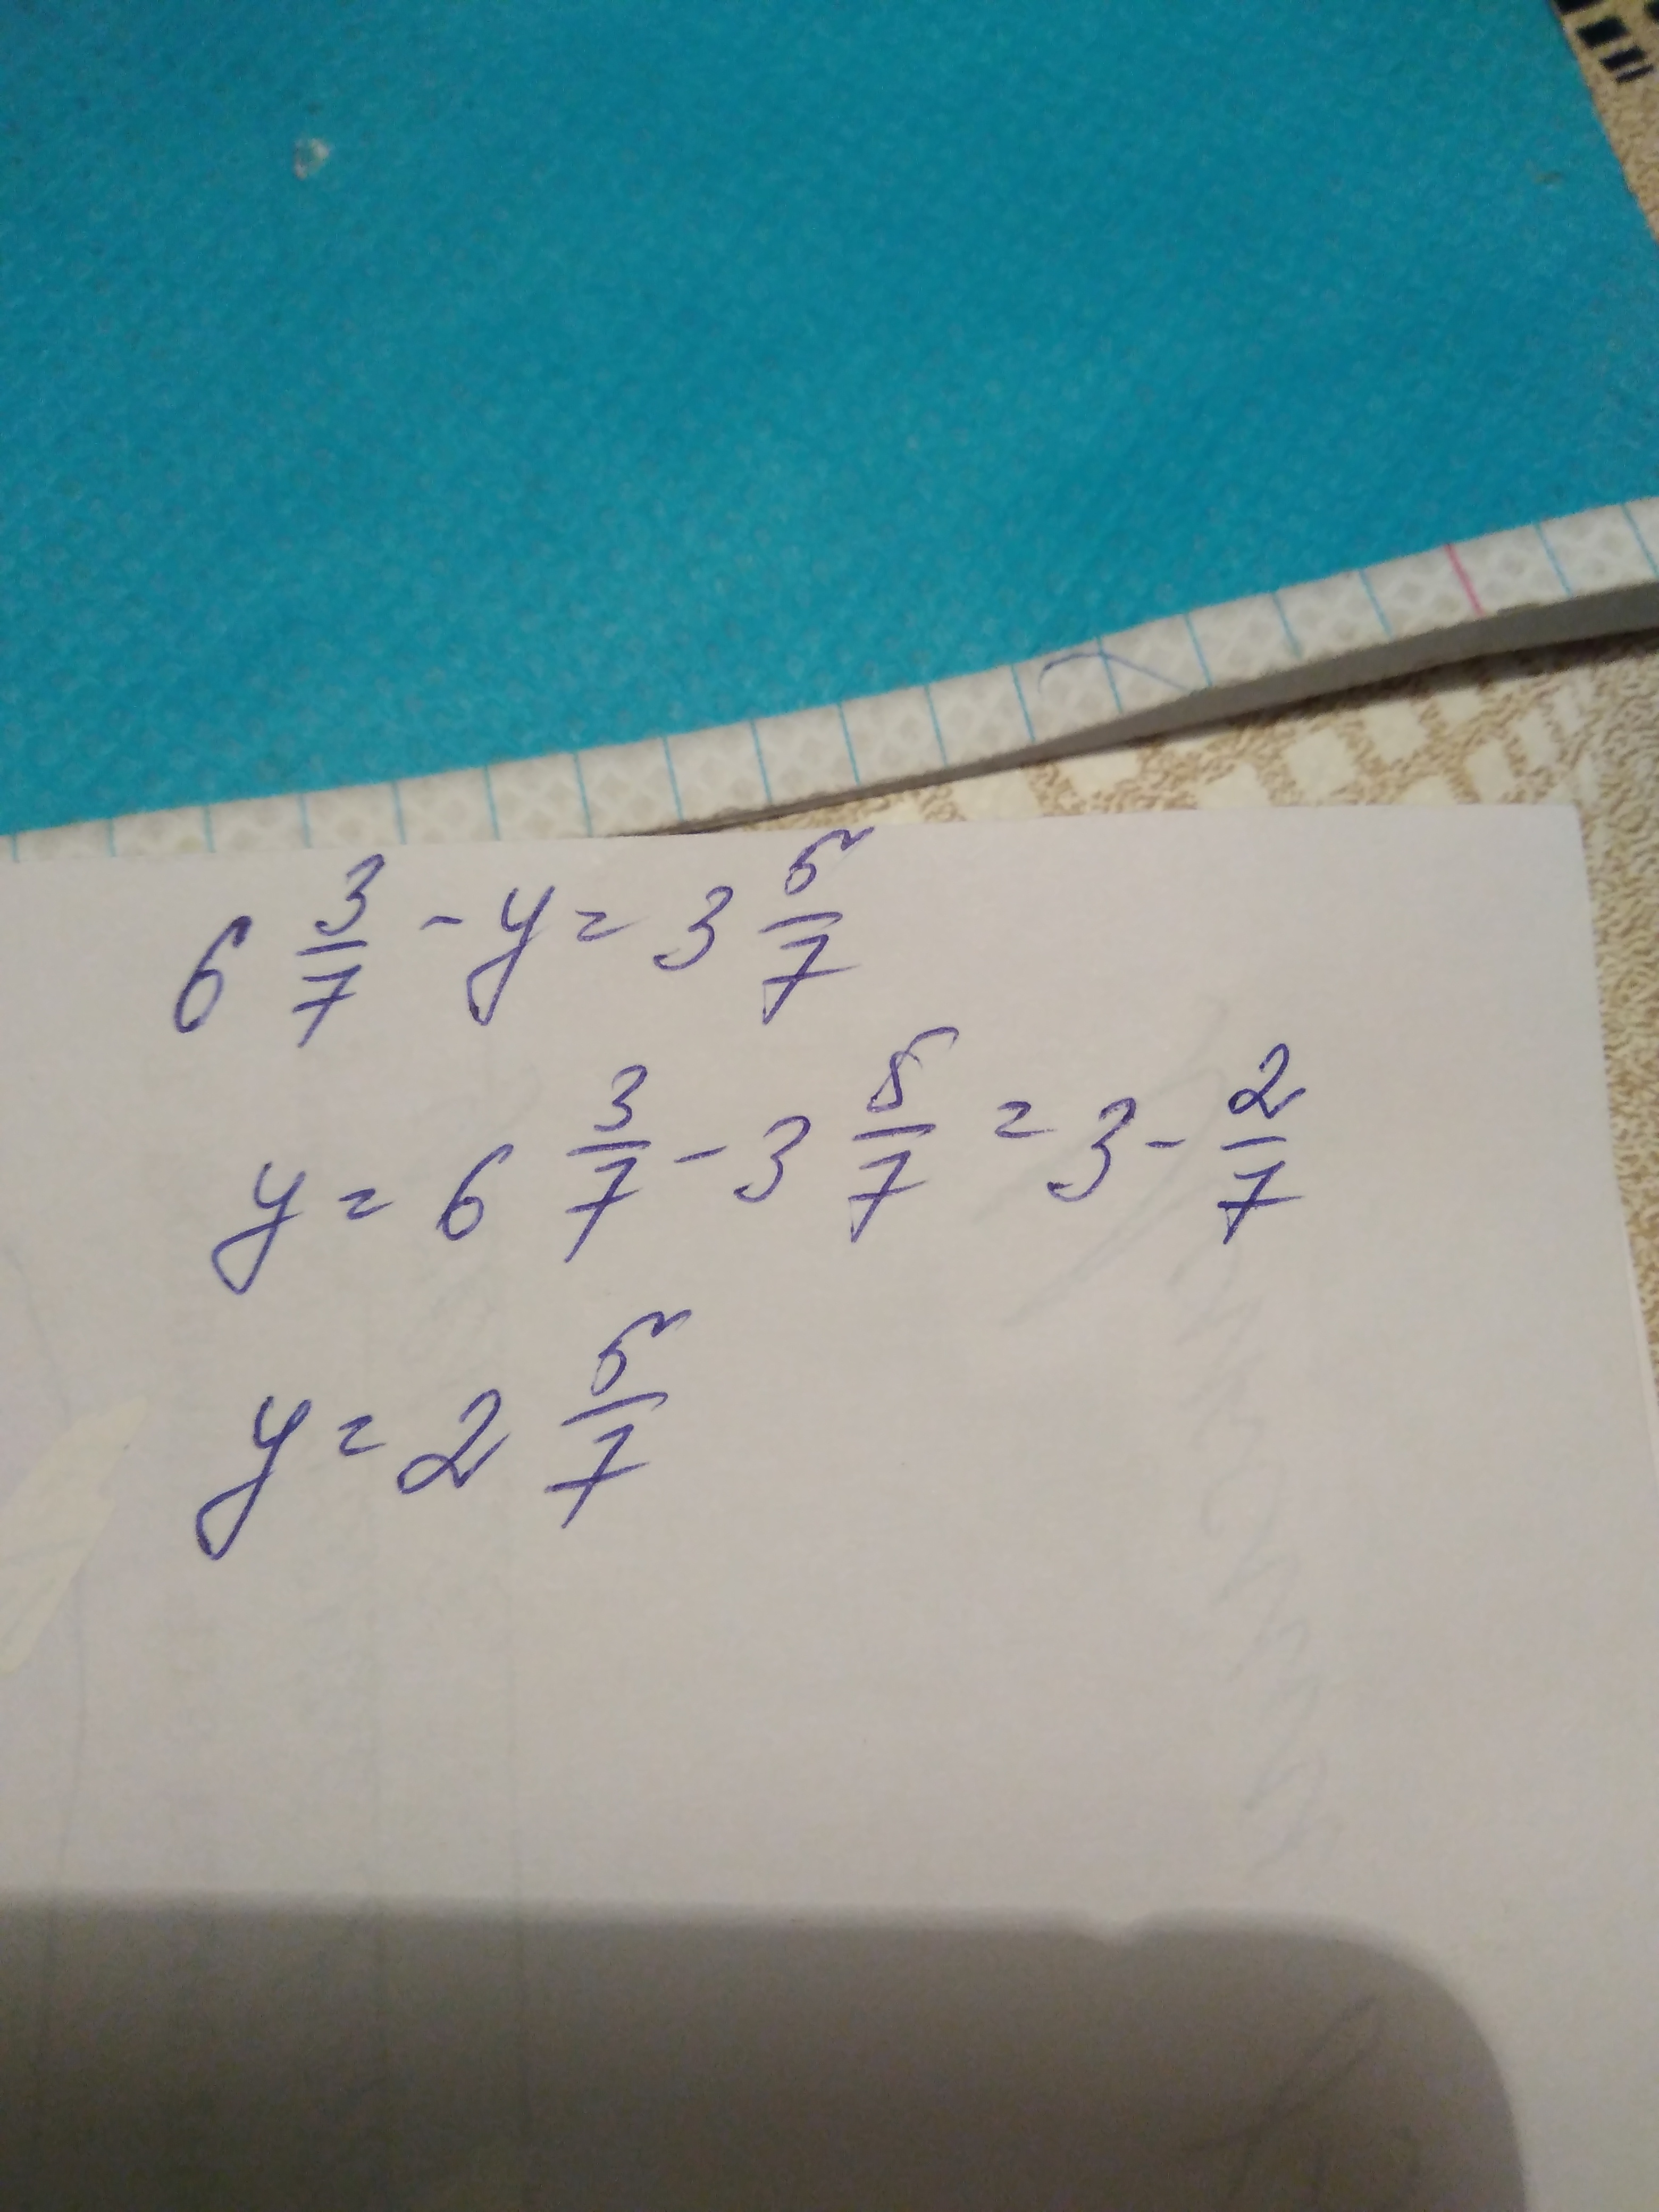 6 3/7 - y = 3 5/7
y = 6 3/7 - 3 5/7 = 3 - 2/7
y = 2 5/7